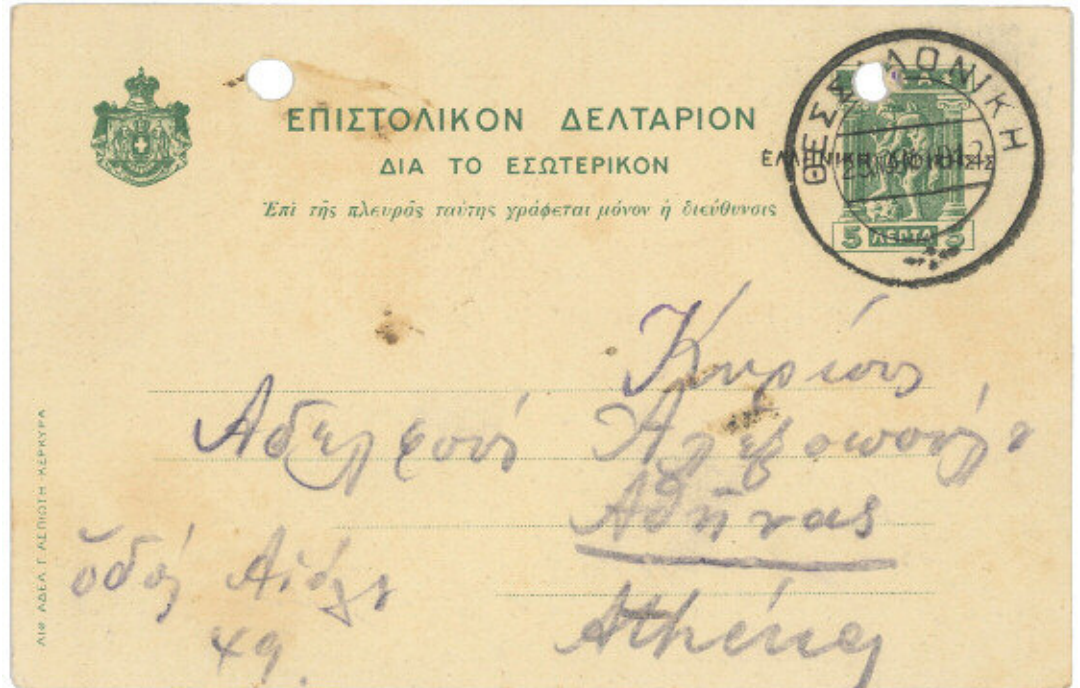 ΕΠΙΣΤΟΛΙΚΟΝ ΔΕΛΤΑΡΙΟΝ
ΔΙΑ ΤΟ ΕΣΩΤΕΡΙΚΟΝ
Ἐπὶ τῆς πλευρᾶς ταύτης γράφεται μόνον ἡ διεύθυνσις
ΘΕΣΣΑΛΟΝΙΚΗ
ΕΛΛΗΝΙΚΗ ΔΙΟΙΚΗΣΙΣ
5 ΛΕΠΤΑ 5
Κυρίους
Ἀδελφούς
Ἀθήνας
ὁδός Αἰόλου
49
Athènes
ΛΙΘ. ΑΔΕΛ. Γ. ΑΣΠΙΩΤΗ - ΚΕΡΚΥΡΑ